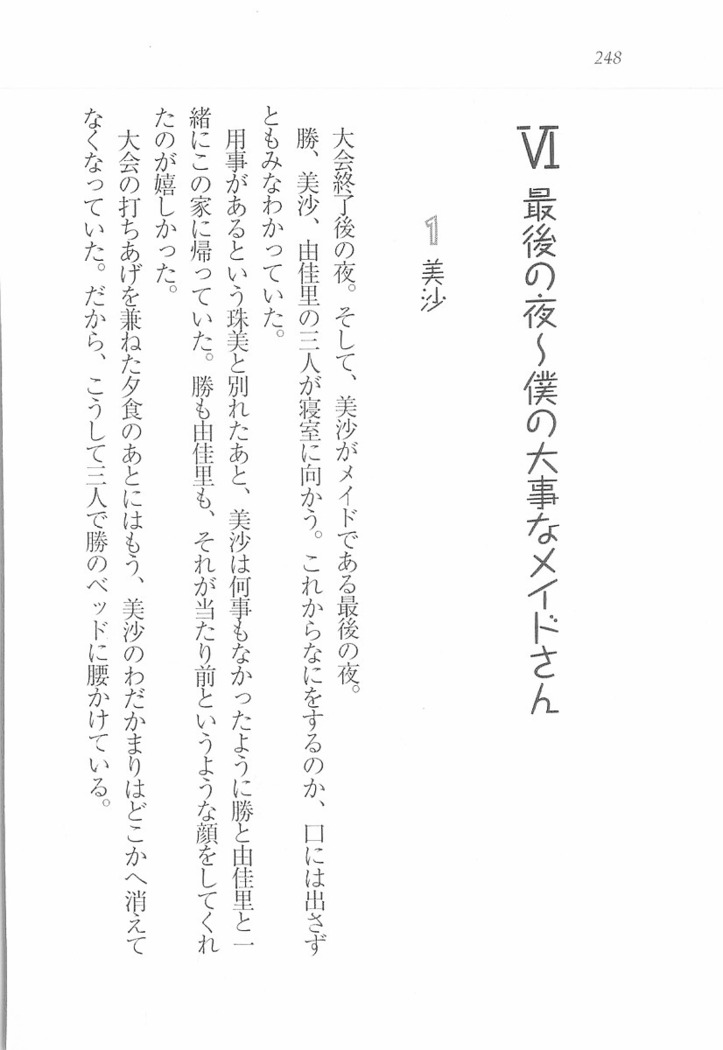 248
Ⅵ 最後の夜〜僕の大事なメイドさん
1 美沙
大会終了後の夜。そして、美沙がメイドである最後の夜。
勝、美沙、由佳里の三人が寝室に向かう。これからなにをするのか、口には出さず
ともみなわかっていた。
用事があるという珠美と別れたあと、美沙は何事もなかったように勝と由佳里と一
緒にこの家に帰っていた。勝も由佳里も、それが当たり前というような顔をしてくれ
たのが嬉しかった。
大会の打ちあげを兼ねた夕食のあとにはもう、美沙のわだかまりはどこかへ消えて
なくなっていた。だから、こうして三人で勝のベッドに腰かけている。